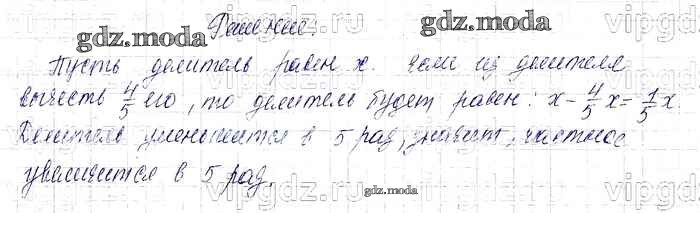 Решение.
gdz.moda gdz.moda
Пусть делитель равен x. Если из делителя
вычесть 4/5 его, то делитель будет равен: x - 4/5 x = 1/5 x.
Делитель уменьшится в 5 раз, значит, частное
увеличится в 5 раз.
gdz.moda